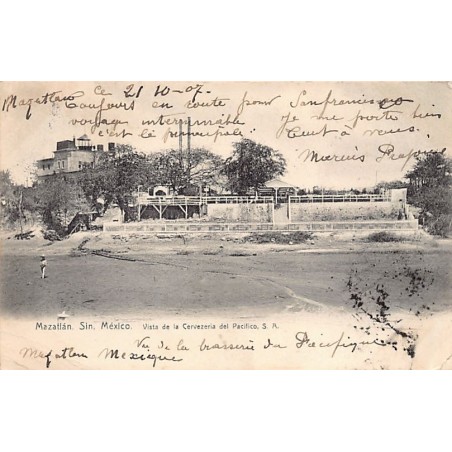 Mazatlan Ce 21 10-07
Toujours en route pour Sanfrancisco
voyage interminable
c'est le principale
Je me porte bien
Tout à vous.
Mazatlán. Sin. México. Vista de la Cervezeria del Pacifico, S. A.
Mazatlan Mexique Vue de la brasserie du Pacifique